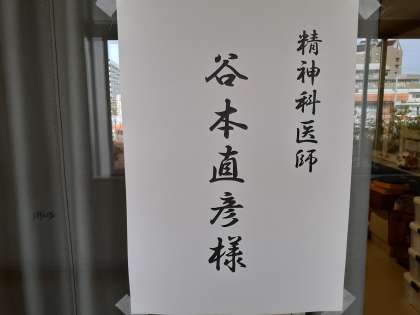 精神科医師
谷本直彦様